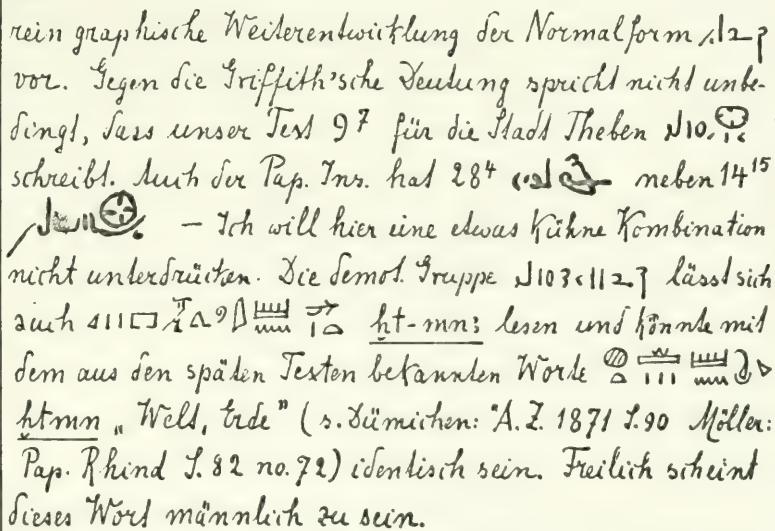 rein graphische Weiterentwicklung der Normalform
vor. Gegen die Griffith'sche Deutung spricht nicht unbe-
dingt, dass unser Text 9⁷ für die Stadt Theben
schreibt. Auch der Pap. Ins. hat 28⁴ neben 14¹⁵
– Ich will hier eine etwas kühne Kombination
nicht unterdrücken. Die demot. Gruppe lässt sich
auch ḫt-mnꜣ lesen und könnte mit
dem aus den späten Texten bekannten Worte
ḫtmn „Welt, Erde" (s. Dümichen: "A.Z. 1871 S. 90 Möller:
Pap. Rhind S. 82 no. 72) identisch sein. Freilich scheint
dieses Wort männlich zu sein.